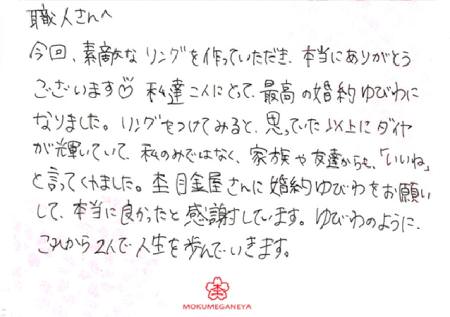 職人さんへ
今回、素敵なリングを作っていただき、本当にありがとう
ございます♡ 私達二人にとって、最高の婚約ゆびわに
なりました。リングをつけてみると、思っていた以上にダイヤ
が輝いていて、私のみではなく、家族や友達からも、「いいね」
と言ってくれました。杢目金屋さんに婚約ゆびわをお願い
して、本当に良かったと感謝しています。ゆびわのように、
これから2人で人生を歩んでいきます。
MOKUMEGANEYA